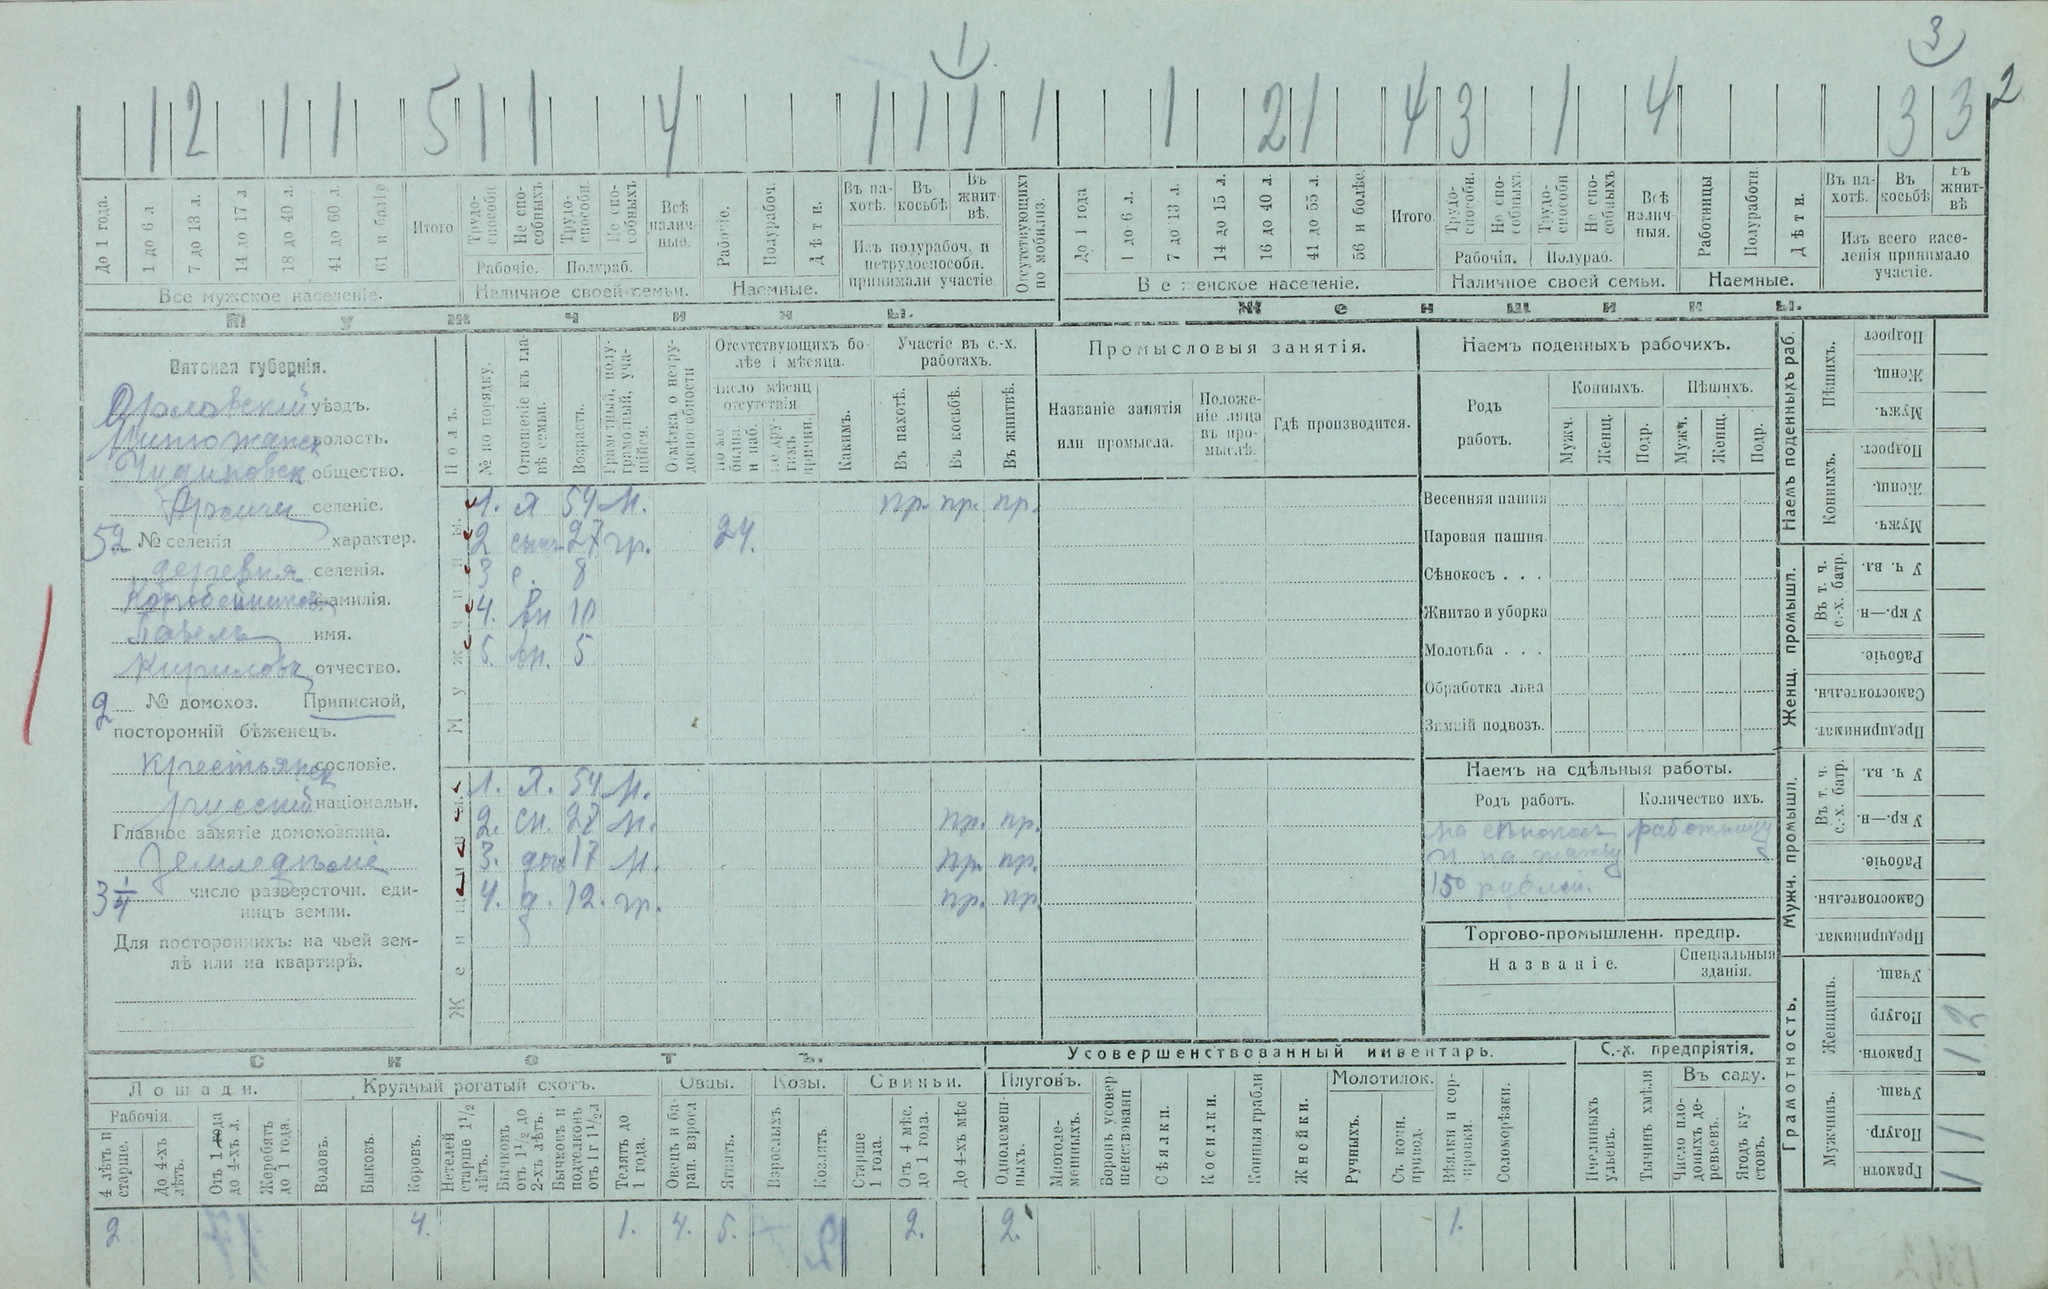 1 3
1 2 1 1 5 1 1 4 1 1 1 1 1 2 1 4 3 1 4 3 3 2
До 1 года. 1 до 6 л 7 до 13 л. 14 до 17 л 18 до 40 л. 41 до 60 л. 61 и болѣе Итого
Трудоспособн Не способныхъ Трудоспособн. Не способныхъ Всѣ наличные.
Рабочіе. Полураб.
Рабочіе. Полурабоч. Дѣти.
Въ пахотѣ. Въ косьбѣ Въ жнитвѣ.
Изъ полурабоч. и нетрудоспособн. принимали участіе
Отсутствующихъ по мобилиз.
До 1 года 1 до 6 л. 7 до 13 л. 14 до 15 л. 16 до 40 л. 41 до 55 л. 56 и болѣе. Итого.
Трудоспособн. Не способныхъ. Трудоспособн Не способныхъ Всѣ наличныя.
Рабочія. Полураб.
Работницы Полуработн. Дѣти.
Въ пахотѣ. Въ косьбѣ Въ жнитвѣ
Изъ всего населенія принимало участіе.
Все мужское населеніе. Наличное своей семьи. Наемные. Все женское населеніе. Наличное своей семьи. Наемные.
Мужчины. Женщины.
Вятская губернія.
Орловскій уѣздъ.
волость.
общество.
селеніе.
52 № селенія характер.
деревня селенія.
Коробейниковъ фамилія.
Павелъ имя.
Кириловъ отчество.
2 № домохоз. Приписной,
посторонній бѣженецъ.
Крестьянск сословіе.
русскій національн.
Главное занятіе домохозяина.
Земледѣліе
3 1/4 число разверсточн. единицъ земли.
Для постороннихъ: на чьей землѣ или на квартирѣ.
Полъ. № по порядку. Отношеніе къ главѣ семьи. Возрастъ. Грамотный, полуграмотный, учащійся. Отмѣтка о нетрудоспособности
Отсутствующихъ болѣе 1 мѣсяца.
Число мѣсяц отсутствія
По мобилиз. и наб. По другимъ причин. Какимъ.
Участіе въ с.-х. работахъ.
Въ пахотѣ. Въ косьбѣ. Въ жнитвѣ.
Промысловыя занятія.
Названіе занятія или промысла. Положеніе лица въ промыслѣ. Гдѣ производится.
Мужчины.
1. я 54 н. пр. пр. пр.
2 сынъ 27 гр. 24.
3 с. 8
4. вн 10
5. вн. 5
Женщины.
1. Я. 54 н.
2. сн. 27 н. пр. пр.
3. доч 17 н. пр. пр.
4. д. 12. гр. пр. пр.
Наемъ поденныхъ рабочихъ.
Родъ работъ. Конныхъ. Пѣшихъ.
Мужч. Женщ. Подр. Мужч. Женщ. Подр.
Весенняя пашня
Паровая пашня.
Сѣнокосъ . . .
Жнитво и уборка
Молотьба . . .
Обработка льна
Зимній подвозъ.
Наемъ на сдѣльныя работы.
Родъ работъ. Количество ихъ.
на сѣнокосъ работницу
и на жатву
150 рублей.
Торгово-промышленн. предпр.
Названіе. Спеціальныя зданія.
Наемъ поденныхъ раб.
Пѣшихъ. Подрост Женщ. Мужч.
Конныхъ. Подрост. Женщ. Мужч.
Женщ. промышл.
Въ т. ч. с.-х. батр. У ч. вл. У кр.—н.
Рабочіе. Самостоятельн. Предпринимат.
Мужч. промышл.
Въ т. ч. с.-х. батр. У ч. вл. У кр.—н.
Рабочіе. Самостоятельн. Предпринимат.
Грамотность.
Женщинъ. Учащ. Полугр Грамотн.
Мужчинъ. Учащ. Полугр. Грамотн
Скотъ.
Лошади. Крупный рогатый скотъ. Овцы. Козы. Свиньи.
Рабочія.
4 лѣтъ и старше. До 4-хъ лѣтъ. Отъ 1 года до 4-хъ л. Жеребятъ до 1 года.
Воловъ. Быковъ. Коровъ. Нетелей старше 1 1/2 лѣтъ. Бычковъ отъ 1 1/2 до 2-хъ лѣтъ. Бычковъ и подтелковъ отъ 1 г 1 1/2 л Телятъ до 1 года.
Овецъ и баран. взросл Ягнятъ. Взрослыхъ Козлятъ. Старше 1 года. Отъ 4 мѣс. до 1 года. До 4-хъ мѣс
Усовершенствованный инвентарь.
Плуговъ. Однолемешныхъ. Многолемешныхъ.
Боронъ усовершенствованн Сѣялки. Косилки. Конныя грабли Жнейки.
Молотилок. Ручныхъ. Съ конн. привод.
Вѣялки и сортировки. Соломорѣзки.
С.-х. предпріятія.
Пчелиныхъ ульевъ. Тычинъ хмѣля
Въ саду. Число плодовыхъ деревьевъ. Ягодъ кустовъ.
2 4. 1. 4. 5. 2. 2. 1.